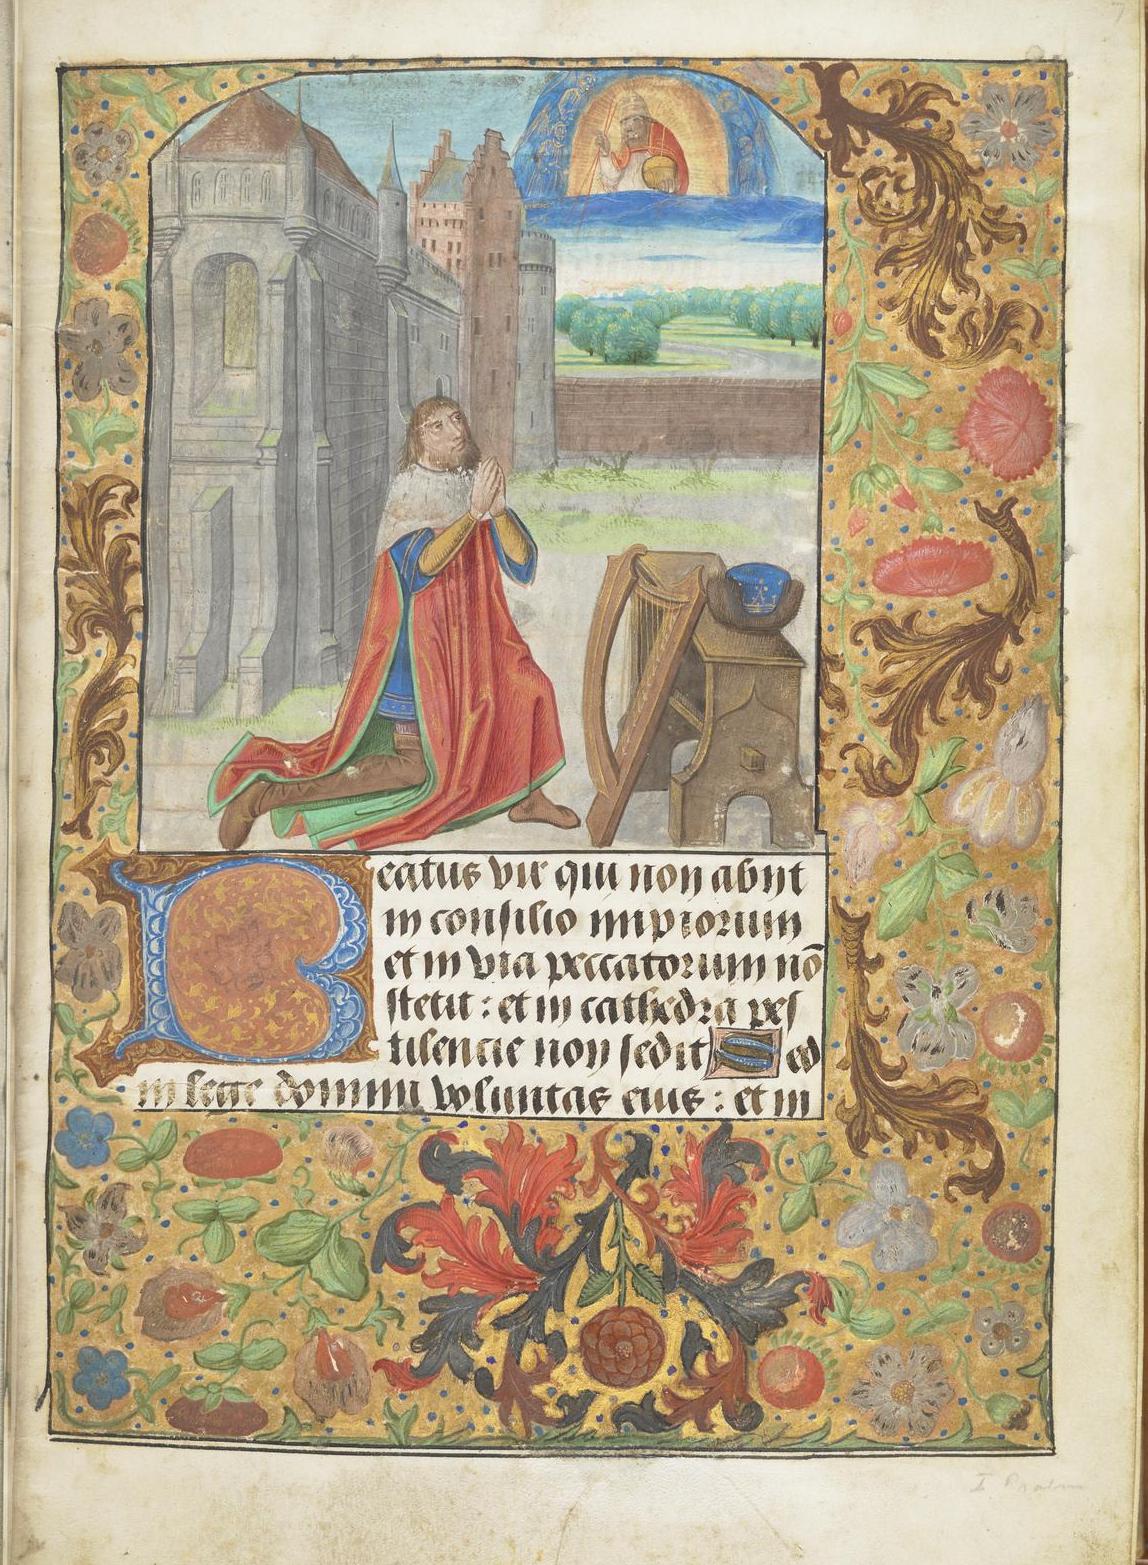 Beatus vir qui non abijt
in consilio impiorum
et in via peccatorum nō
stetit : et in cathedra pes
tilencie non sedit Sed
in lege domini voluntas eius : et in
I. Psalm